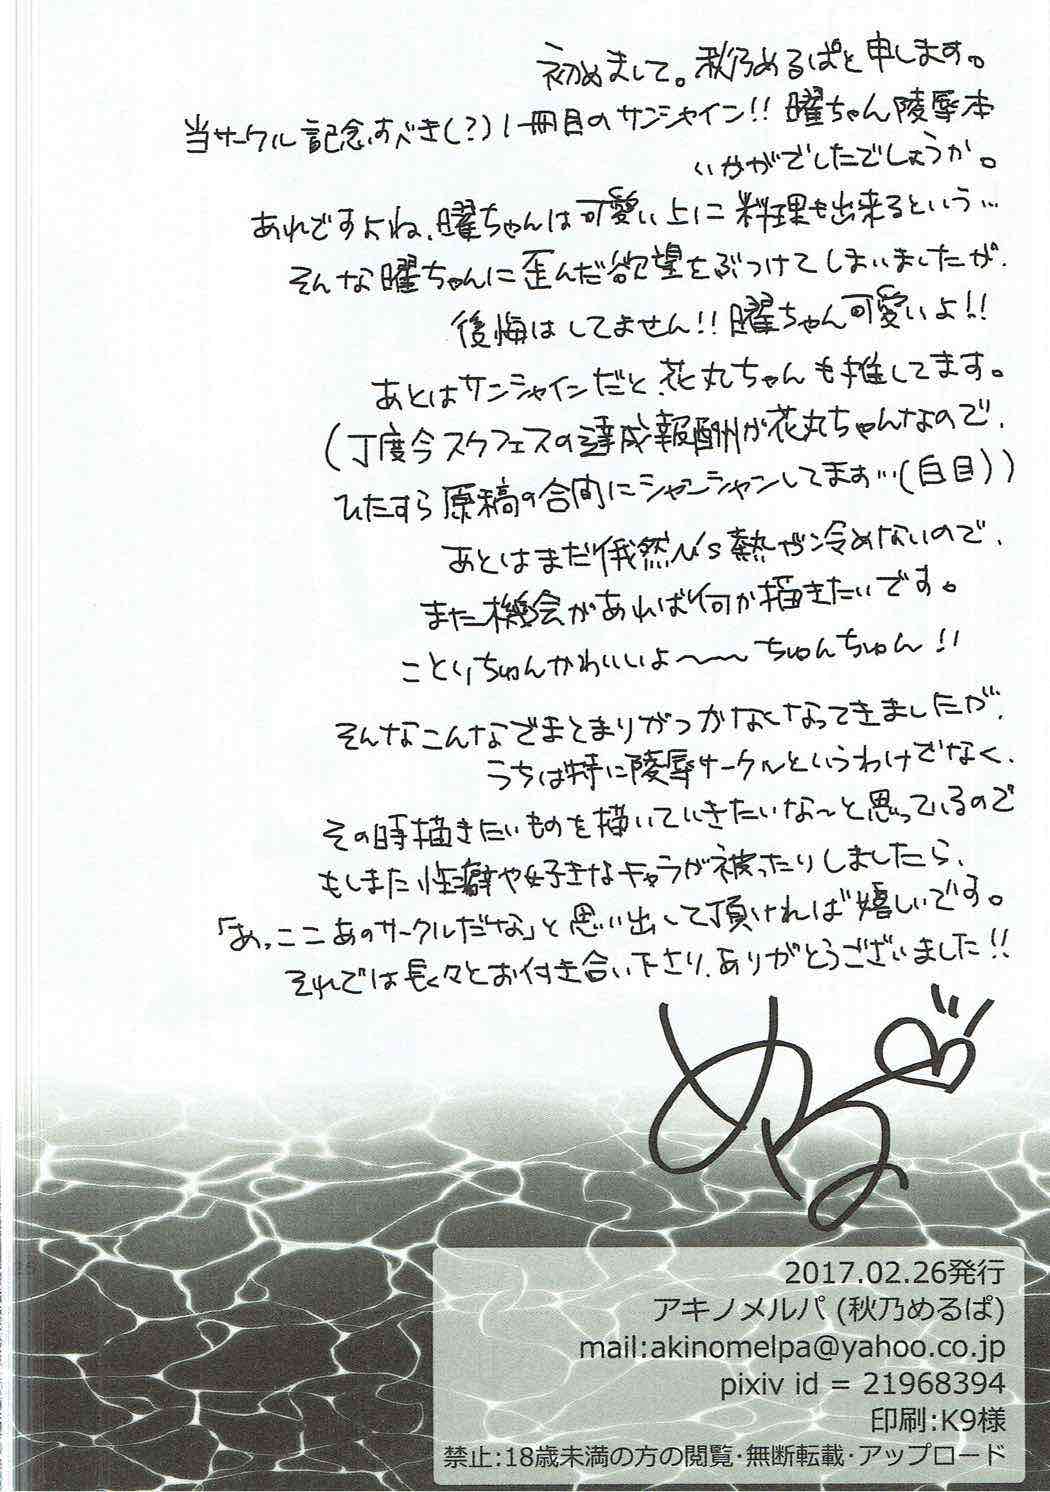 初めまして。秋乃めるぱと申します。
当サークル記念すべき(?)1冊目のサンシャイン!! 曜ちゃん陵辱本
いかがでしたでしょうか。
あれですよね、曜ちゃんは可愛い上に料理も出来るという…
そんな曜ちゃんに歪んだ欲望をぶつけてしまいましたが、
後悔はしてません!! 曜ちゃん可愛いよ!!
あとはサンシャインだと、花丸ちゃんも推してます。
(丁度今スクフェスの達成報酬が花丸ちゃんなので、
ひたすら原稿の合間にシャンシャンしてます…(白目))
あとはまだ俄然μ's熱が冷めないので、
また機会があれば何か描きたいです。
ことりちゅんかわいいよ〜〜〜ちゅんちゅん!!
そんなこんなでまとまりがつかなくなってきましたが、
うちは特に陵辱サークルというわけでなく、
その時描きたいものを描いていきたいな〜と思っているので
もしまた性癖や好きなキャラが被ったりしましたら、
「あっここあのサークルだな」と思い出して頂ければ嬉しいです。
それでは長々とお付き合い下さり、ありがとうございました!!
める
2017.02.26発行
アキノメルパ (秋乃めるぱ)
mail:akinomelpa@yahoo.co.jp
pixiv id = 21968394
印刷:K9様
禁止:18歳未満の方の閲覧･無断転載･アップロード